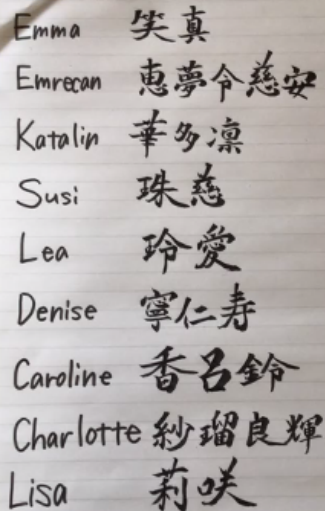 Emma 笑真
Emrecan 恵夢令慈安
Katalin 華多凛
Susi 珠慈
Lea 玲愛
Denise 寧仁寿
Caroline 香呂鈴
Charlotte 紗瑠良輝
Lisa 莉咲